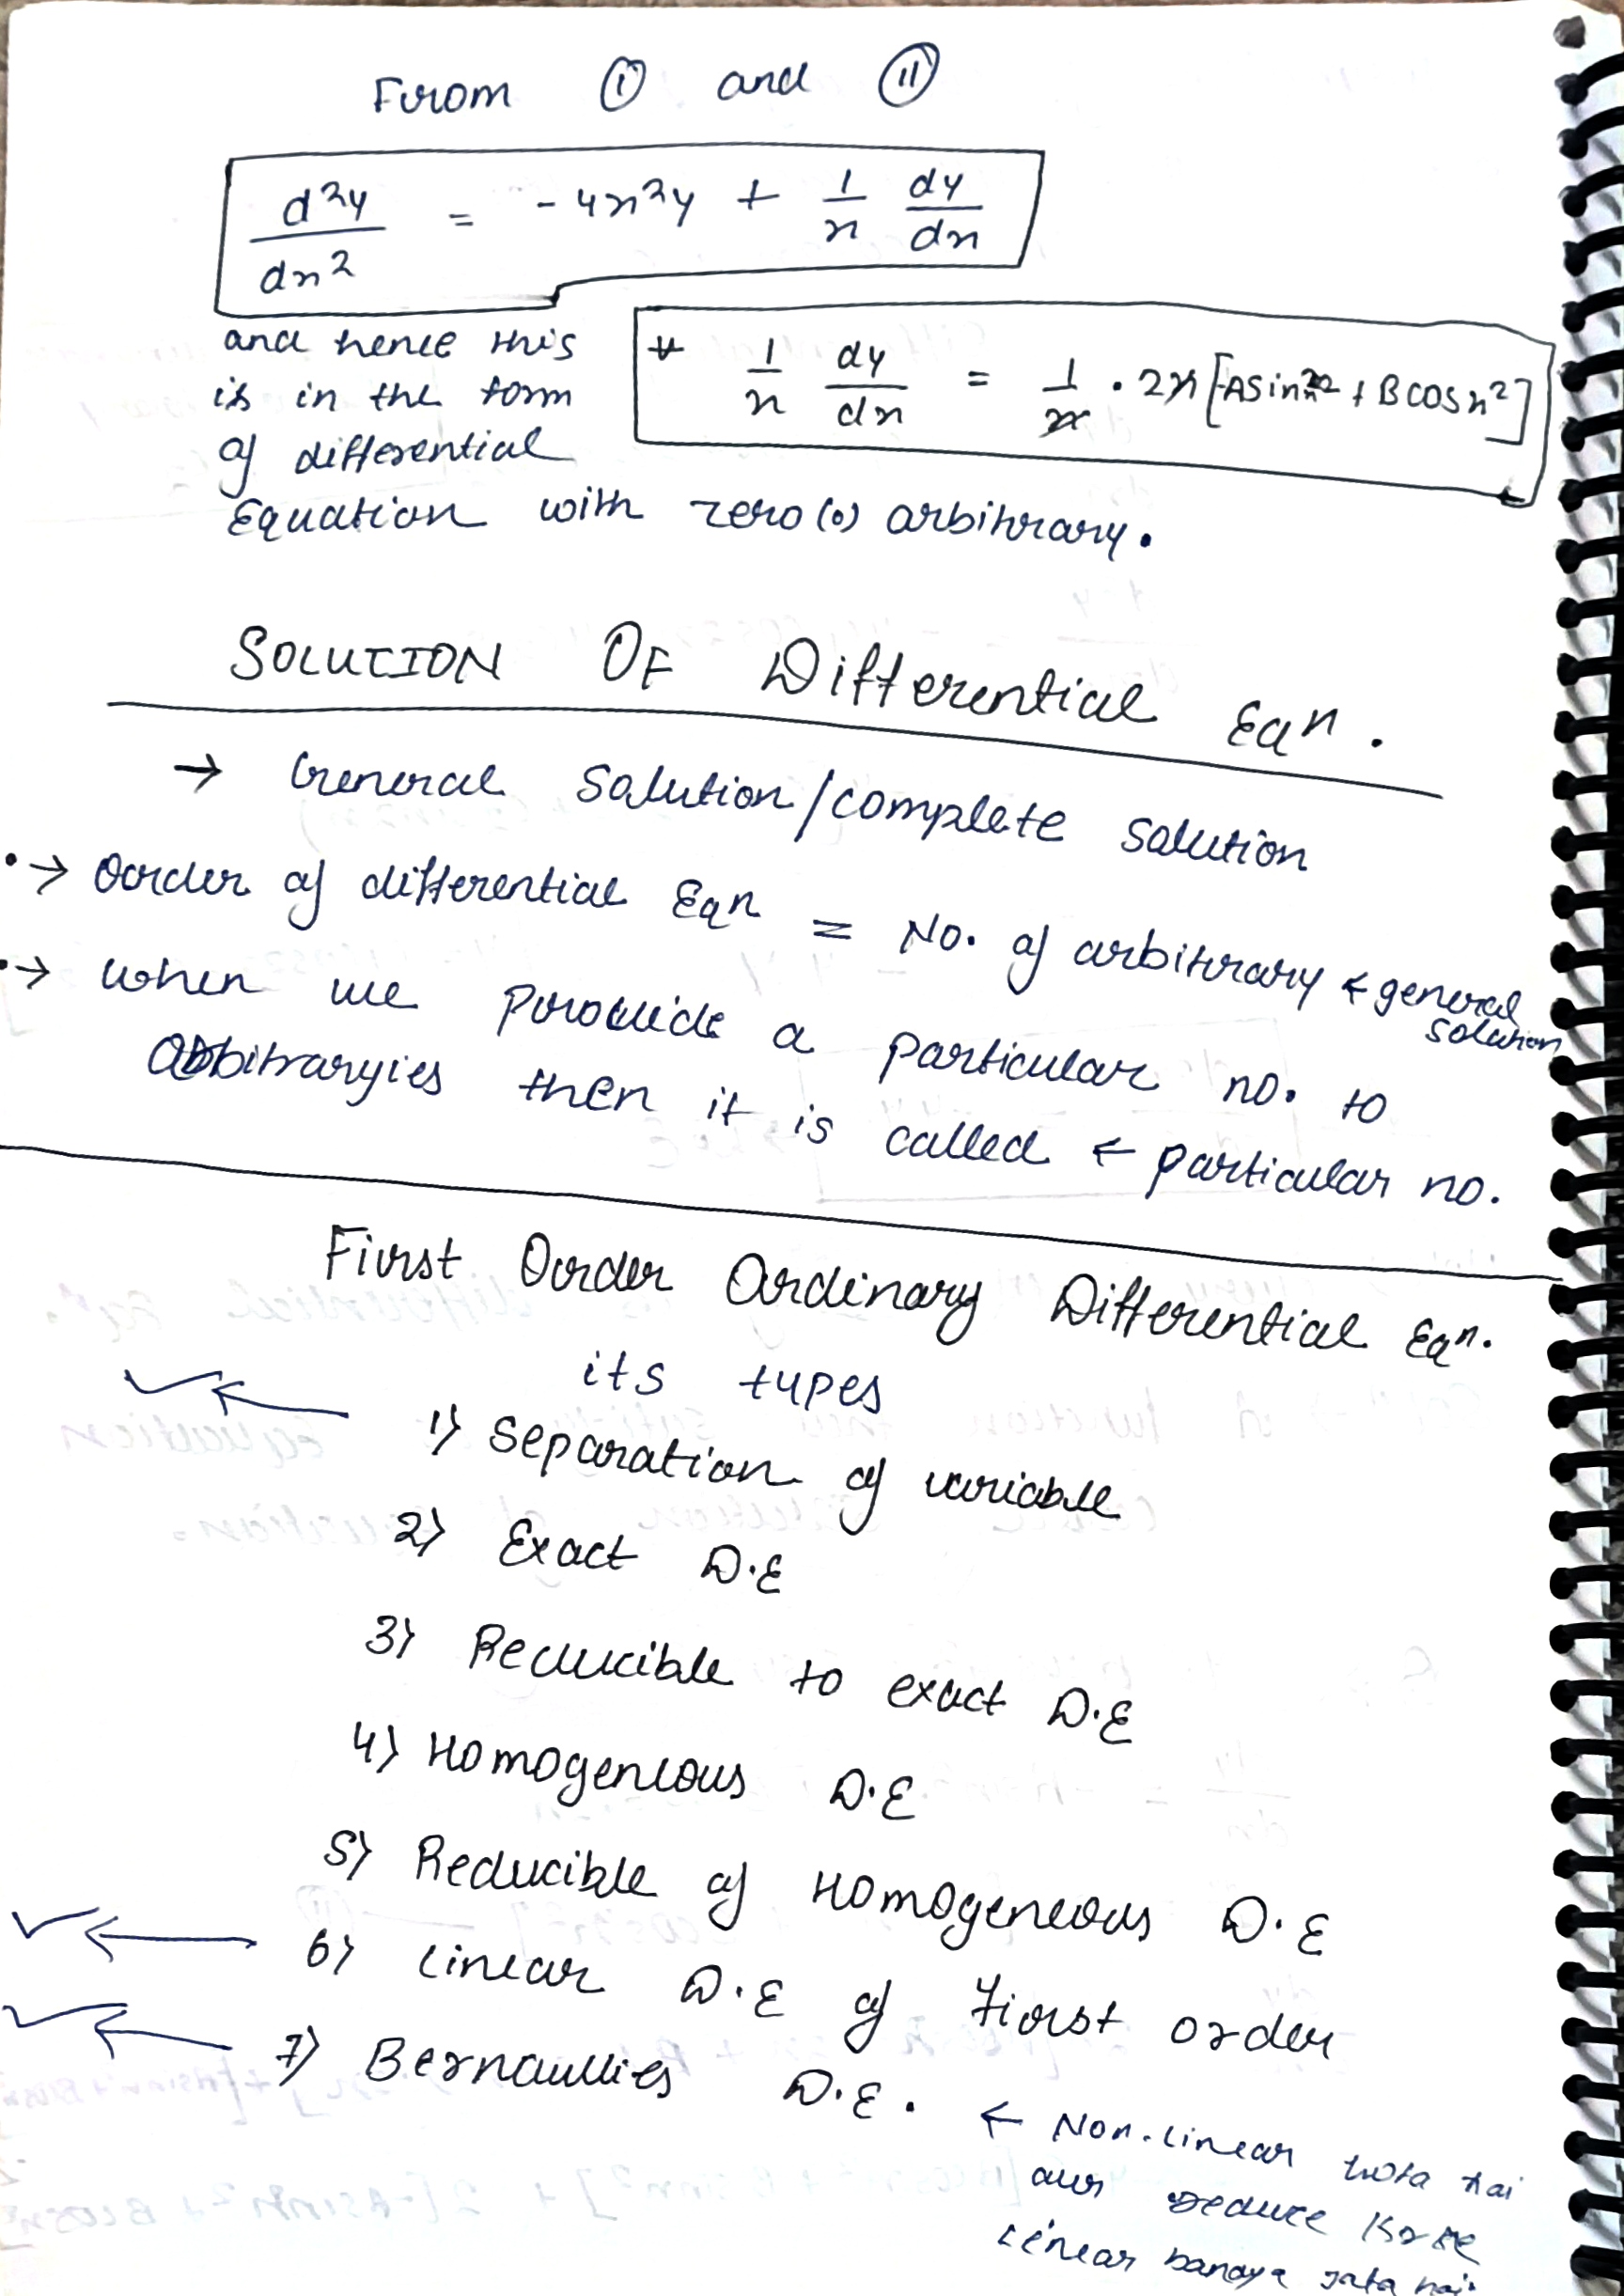 From ① and ⑪
d²y/dx² = -4x²y + 1/x dy/dx
and hence this
is in the form
of differential
Equation with zero(0) arbitrary.
* 1/x dy/dx = 1/x · 2x[-Asinx² + Bcosx²]
SOLUTION OF Differential Eqⁿ.
→ General Solution/complete solution
• → Oorder of differential Eqⁿ = No. of arbitrary ← general solution
• → when we provide a particular no. to
arbitraryies then it is called ← particular no.
First Oorder Ordinary Differential Eqⁿ.
its types
1) Separation of variable
2) Exact D.E
3) Reducible to exact D.E
4) Homogeneous D.E
5) Reducible of Homogeneous D.E
6) Linear D.E of First order
7) Bernaullies D.E. ← Non-linear hota hai
aur reduce Karke
Linear banaya jata hai.